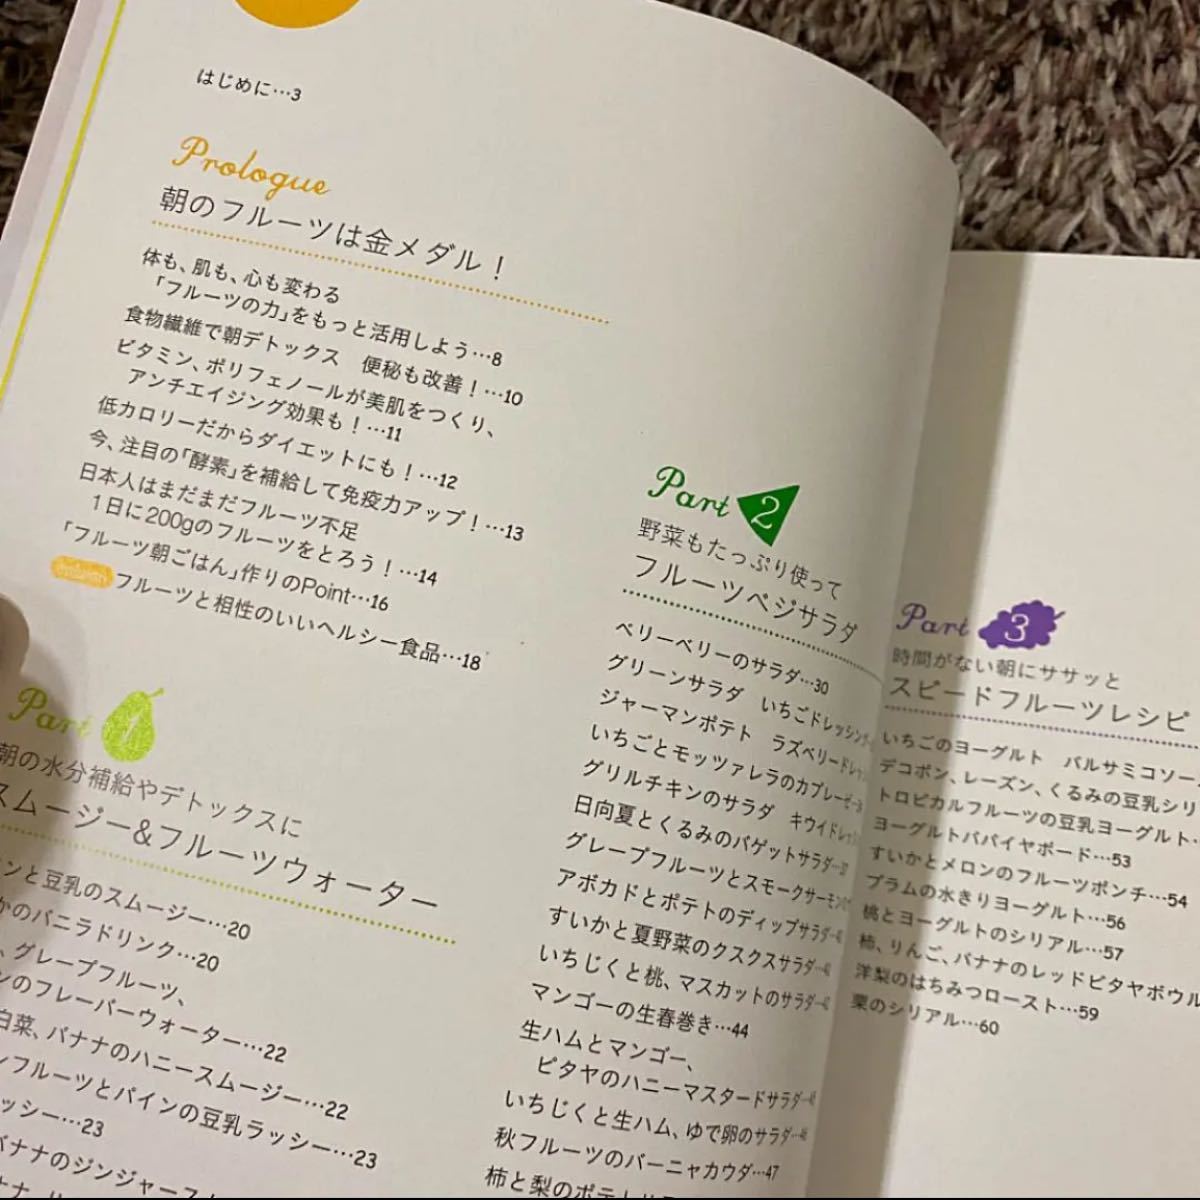 はじめに…3
Prologue
朝のフルーツは金メダル！
体も、肌も、心も変わる
「フルーツの力」をもっと活用しよう…8
食物繊維で朝デトックス　便秘も改善！…10
ビタミン、ポリフェノールが美肌をつくり、
アンチエイジング効果も！…11
低カロリーだからダイエットにも！…12
今、注目の「酵素」を補給して免疫力アップ！…13
日本人はまだまだフルーツ不足
1日に200gのフルーツをとろう！…14
「フルーツ朝ごはん」作りのPoint…16
フルーツと相性のいいヘルシー食品…18
Part 1
朝の水分補給やデトックスに
スムージー&フルーツウォーター
ンと豆乳のスムージー…20
かのバニラドリンク…20
、グレープフルーツ、
ンのフレーバーウォーター…22
白菜、バナナのハニースムージー…22
ンフルーツとパインの豆乳ラッシー…23
ッシー…23
バナナのジンジャース
Part 2
野菜もたっぷり使って
フルーツベジサラダ
ベリーベリーのサラダ…30
グリーンサラダ　いちごドレッシング
ジャーマンポテト　ラズベリードレッ
いちごとモッツァレラのカプレーゼ
グリルチキンのサラダ　キウイドレッ
日向夏とくるみのバゲットサラダ…37
グレープフルーツとスモークサーモン
アボカドとポテトのディップサラダ
すいかと夏野菜のクスクスサラダ
いちじくと桃、マスカットのサラダ…42
マンゴーの生春巻き…44
生ハムとマンゴー、
ピタヤのハニーマスタードサラダ
いちじくと生ハム、ゆで卵のサラダ
秋フルーツのバーニャカウダ…47
柿と梨のポテトサラ
Part 3
時間がない朝にササッと
スピードフルーツレシピ
いちごのヨーグルト　バルサミコソー
デコポン、レーズン、くるみの豆乳シリ
トロピカルフルーツの豆乳ヨーグルト
ヨーグルトパパイヤボード…53
すいかとメロンのフルーツポンチ…54
プラムの水きりヨーグルト…56
桃とヨーグルトのシリアル…57
柿、りんご、バナナのレッドピタヤボウル
洋梨のはちみつロースト…59
栗のシリアル…60